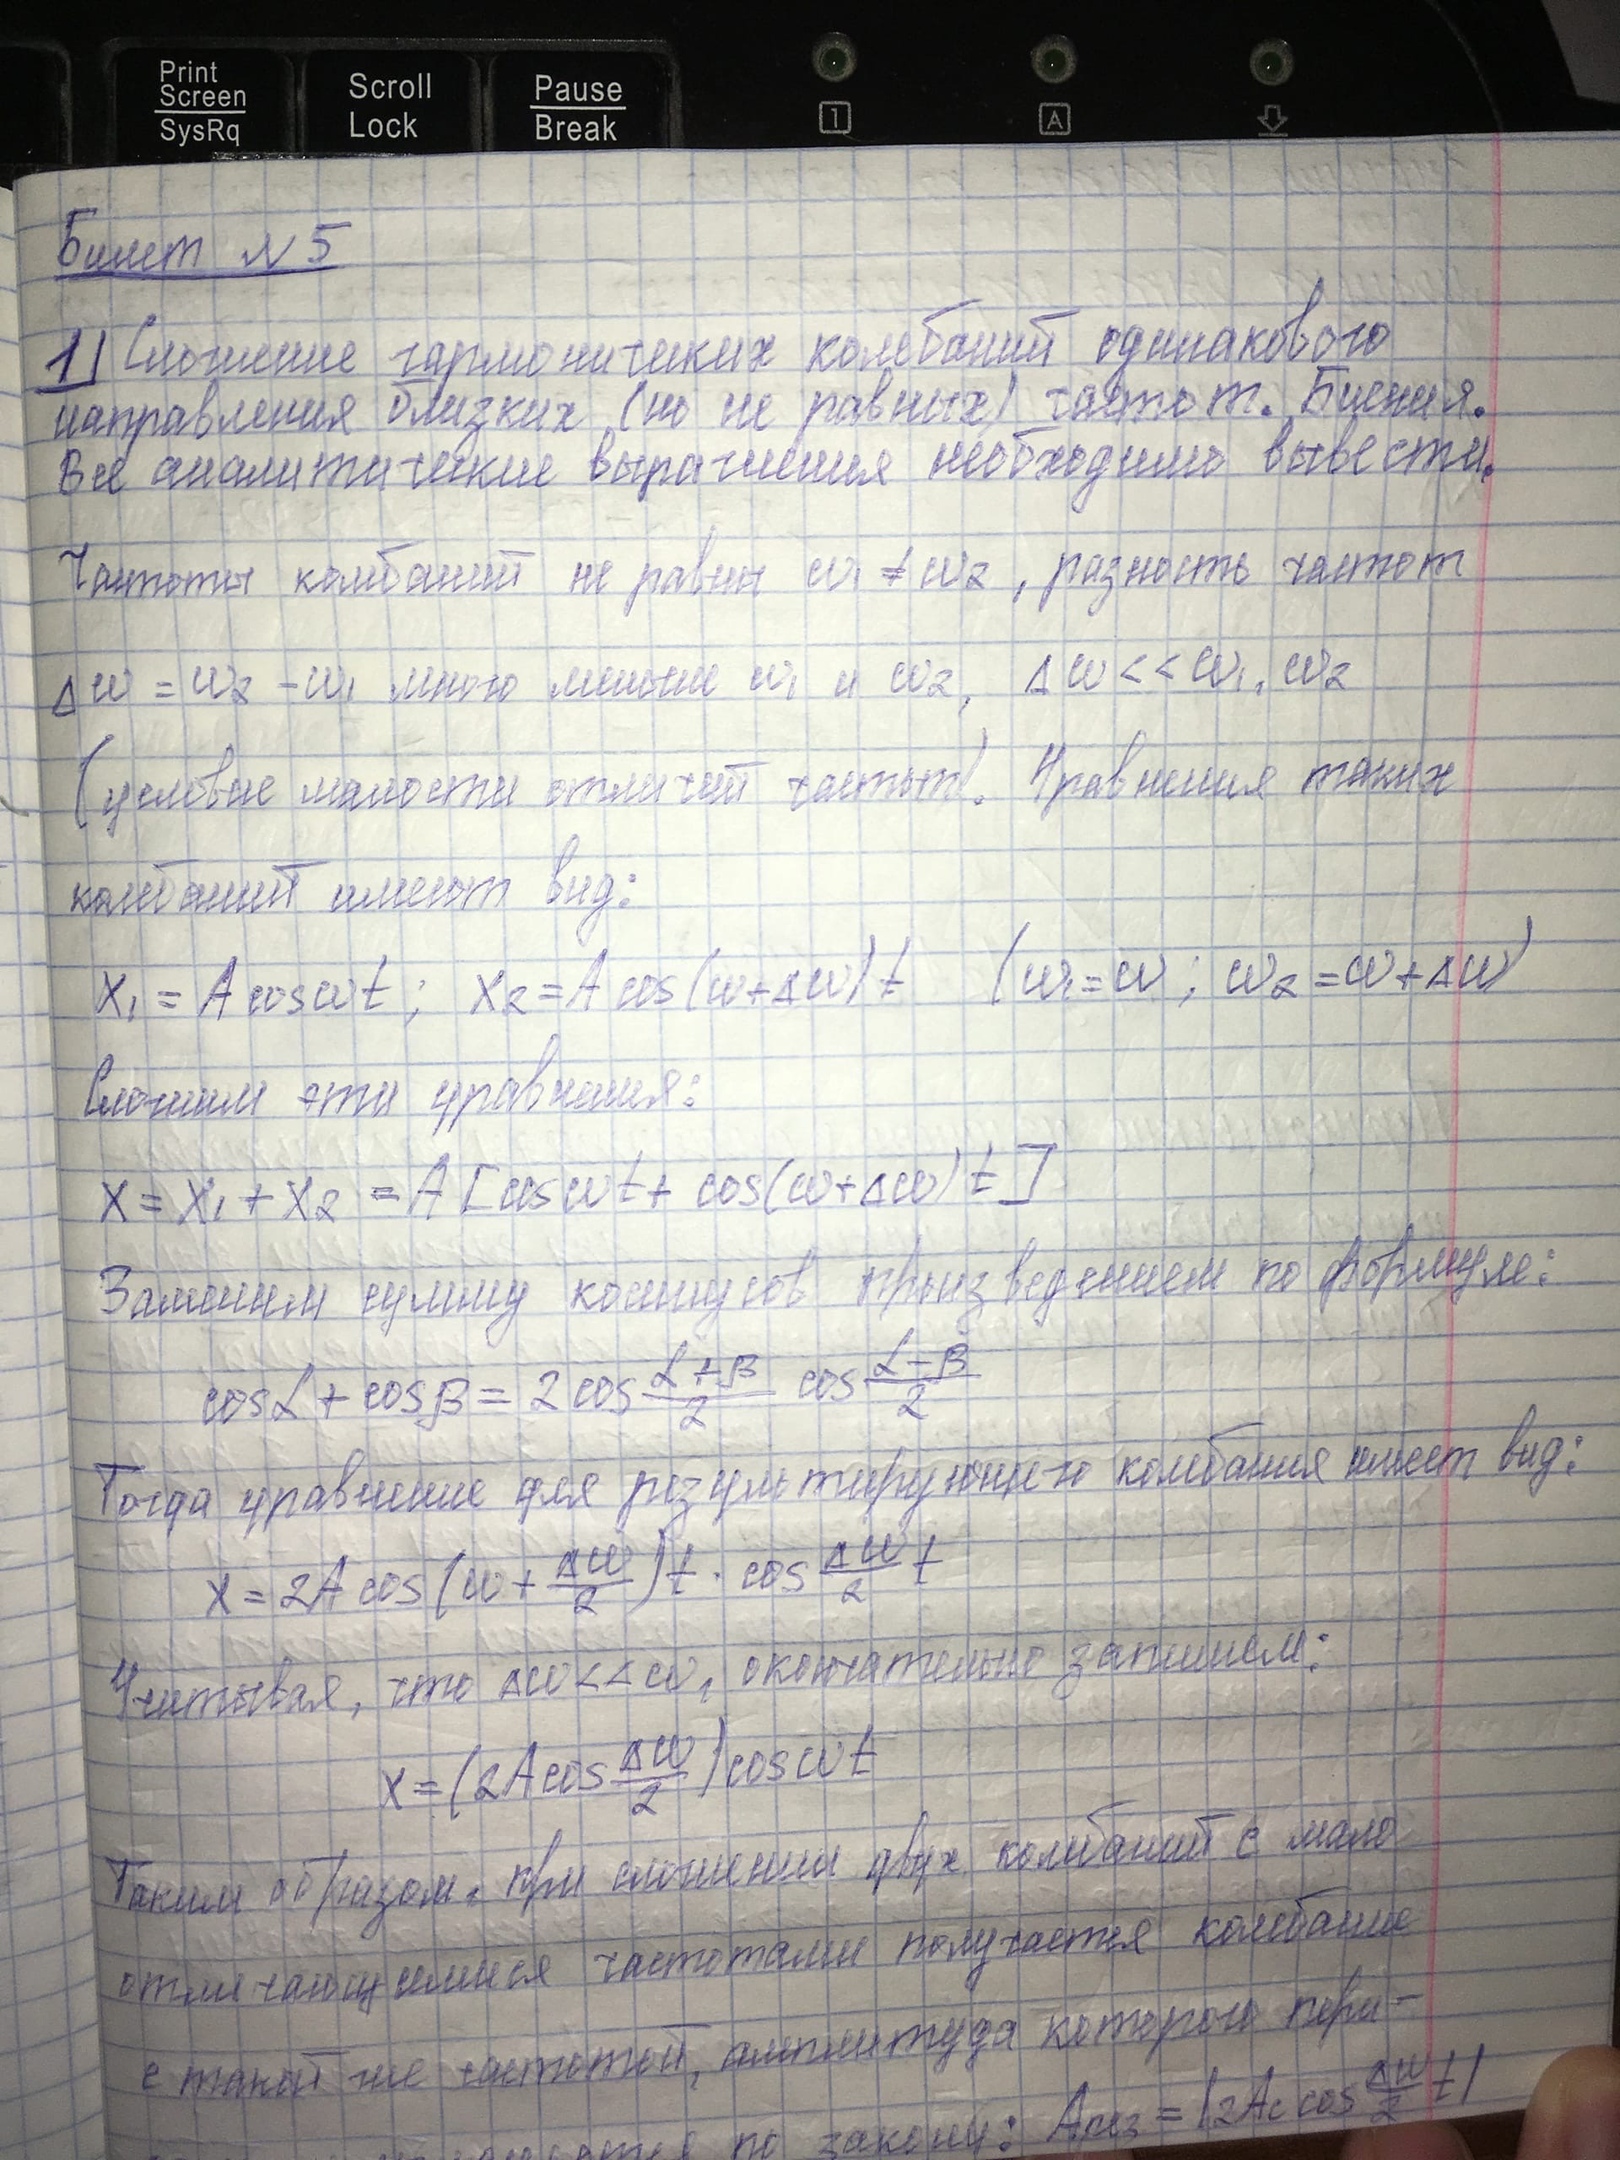 Print
Screen
SysRq
Scroll
Lock
Pause
Break
1
A
Билет №5
1) Сложение гармонических колебаний одинакового
направления близких (но не равных) частот. Биения.
Все аналитические выражения необходимо вывести.
Частоты колебаний не равны ω₁ ≠ ω₂, разность частот
Δω = ω₂ - ω₁ много меньше ω₁ и ω₂, Δω << ω₁, ω₂
(условие малости отличий частот). Уравнения таких
колебаний имеют вид:
x₁ = A cos ωt; x₂ = A cos(ω+Δω)t (ω₁=ω; ω₂=ω+Δω)
Сложим эти уравнения:
x = x₁ + x₂ = A [cos ωt + cos(ω+Δω)t]
Заменим сумму косинусов произведением по формуле:
cos α + cos β = 2 cos (α+β)/2 cos (α-β)/2
Тогда уравнение для результирующего колебания имеет вид:
x = 2A cos(ω + Δω/2)t · cos Δω/2 t
Учитывая, что Δω << ω, окончательно запишем:
x = (2A cos Δω/2) cos ωt
Таким образом, при сложении двух колебаний с мало
отличающимися частотами получается колебание
с такой же частотой, амплитуда которого пери-
по закону: Aрез = |2A cos Δω/2 t|